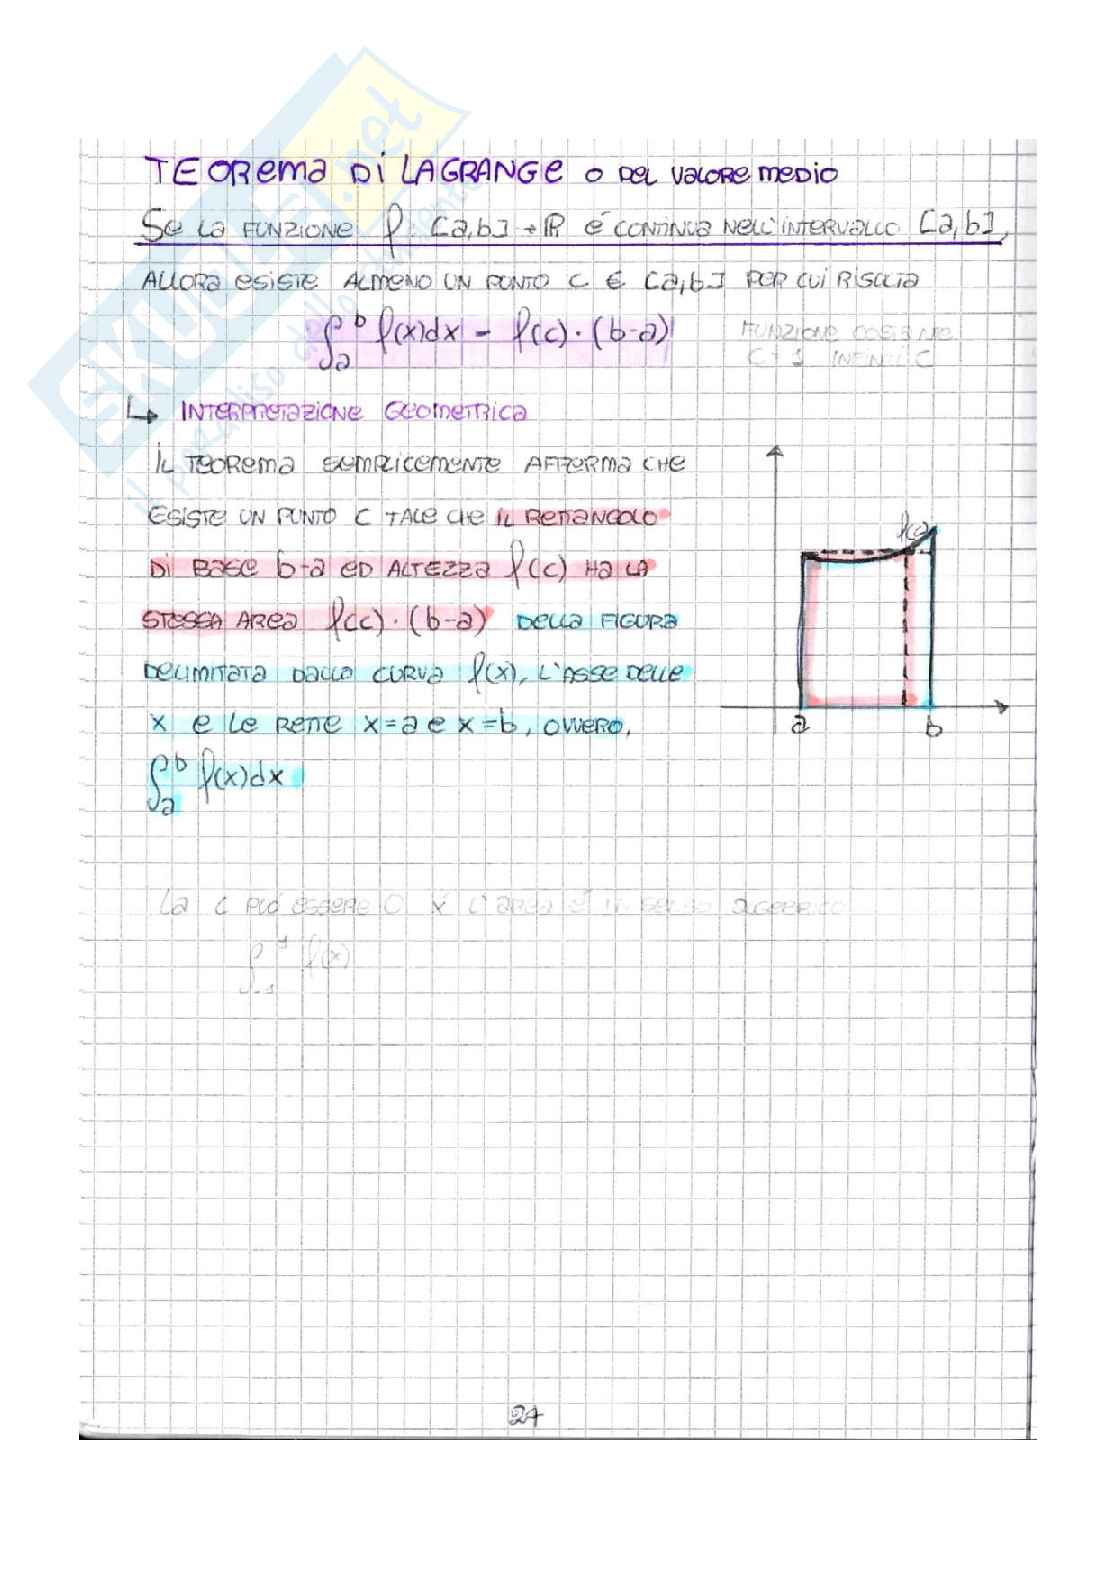 TEOREMA DI LAGRANGE O DEL VALORE MEDIO
SE LA FUNZIONE f: [a,b] → R É CONTINUA NELL'INTERVALLO [a,b],
ALLORA ESISTE ALMENO UN PUNTO C ∈ [a,b] PER CUI RISULTA
∫_a^b f(x)dx = f(c)·(b-a)
FUNZIONE COSENO
INFINITI C
↳ INTERPRETAZIONE GEOMETRICA
IL TEOREMA SEMPLICEMENTE AFFERMA CHE
ESISTE UN PUNTO C TALE CHE IL RETTANGOLO
DI BASE b-a ED ALTEZZA f(c) HA LA
STESSA AREA f(c)·(b-a) DELLA FIGURA
DELIMITATA DALLA CURVA f(x), L'ASSE DELLE
X E LE RETTE X=a E X=b, OVVERO,
∫_a^b f(x)dx
f(c)
a b
La C PUÓ ESSERE O L'AREA É IN SENSO ALGEBRICO
∫_-1^1 f(x)
27
SKUOLA.net
il paradiso dello studente